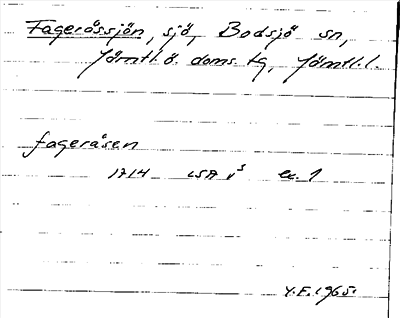 Fageråssjön, sjö, Bodsjö sn,
Jämtl. ö. doms. tg, Jämtl. l.
fageråsen
1714 LSA ec. 1
Y.F. 1965.